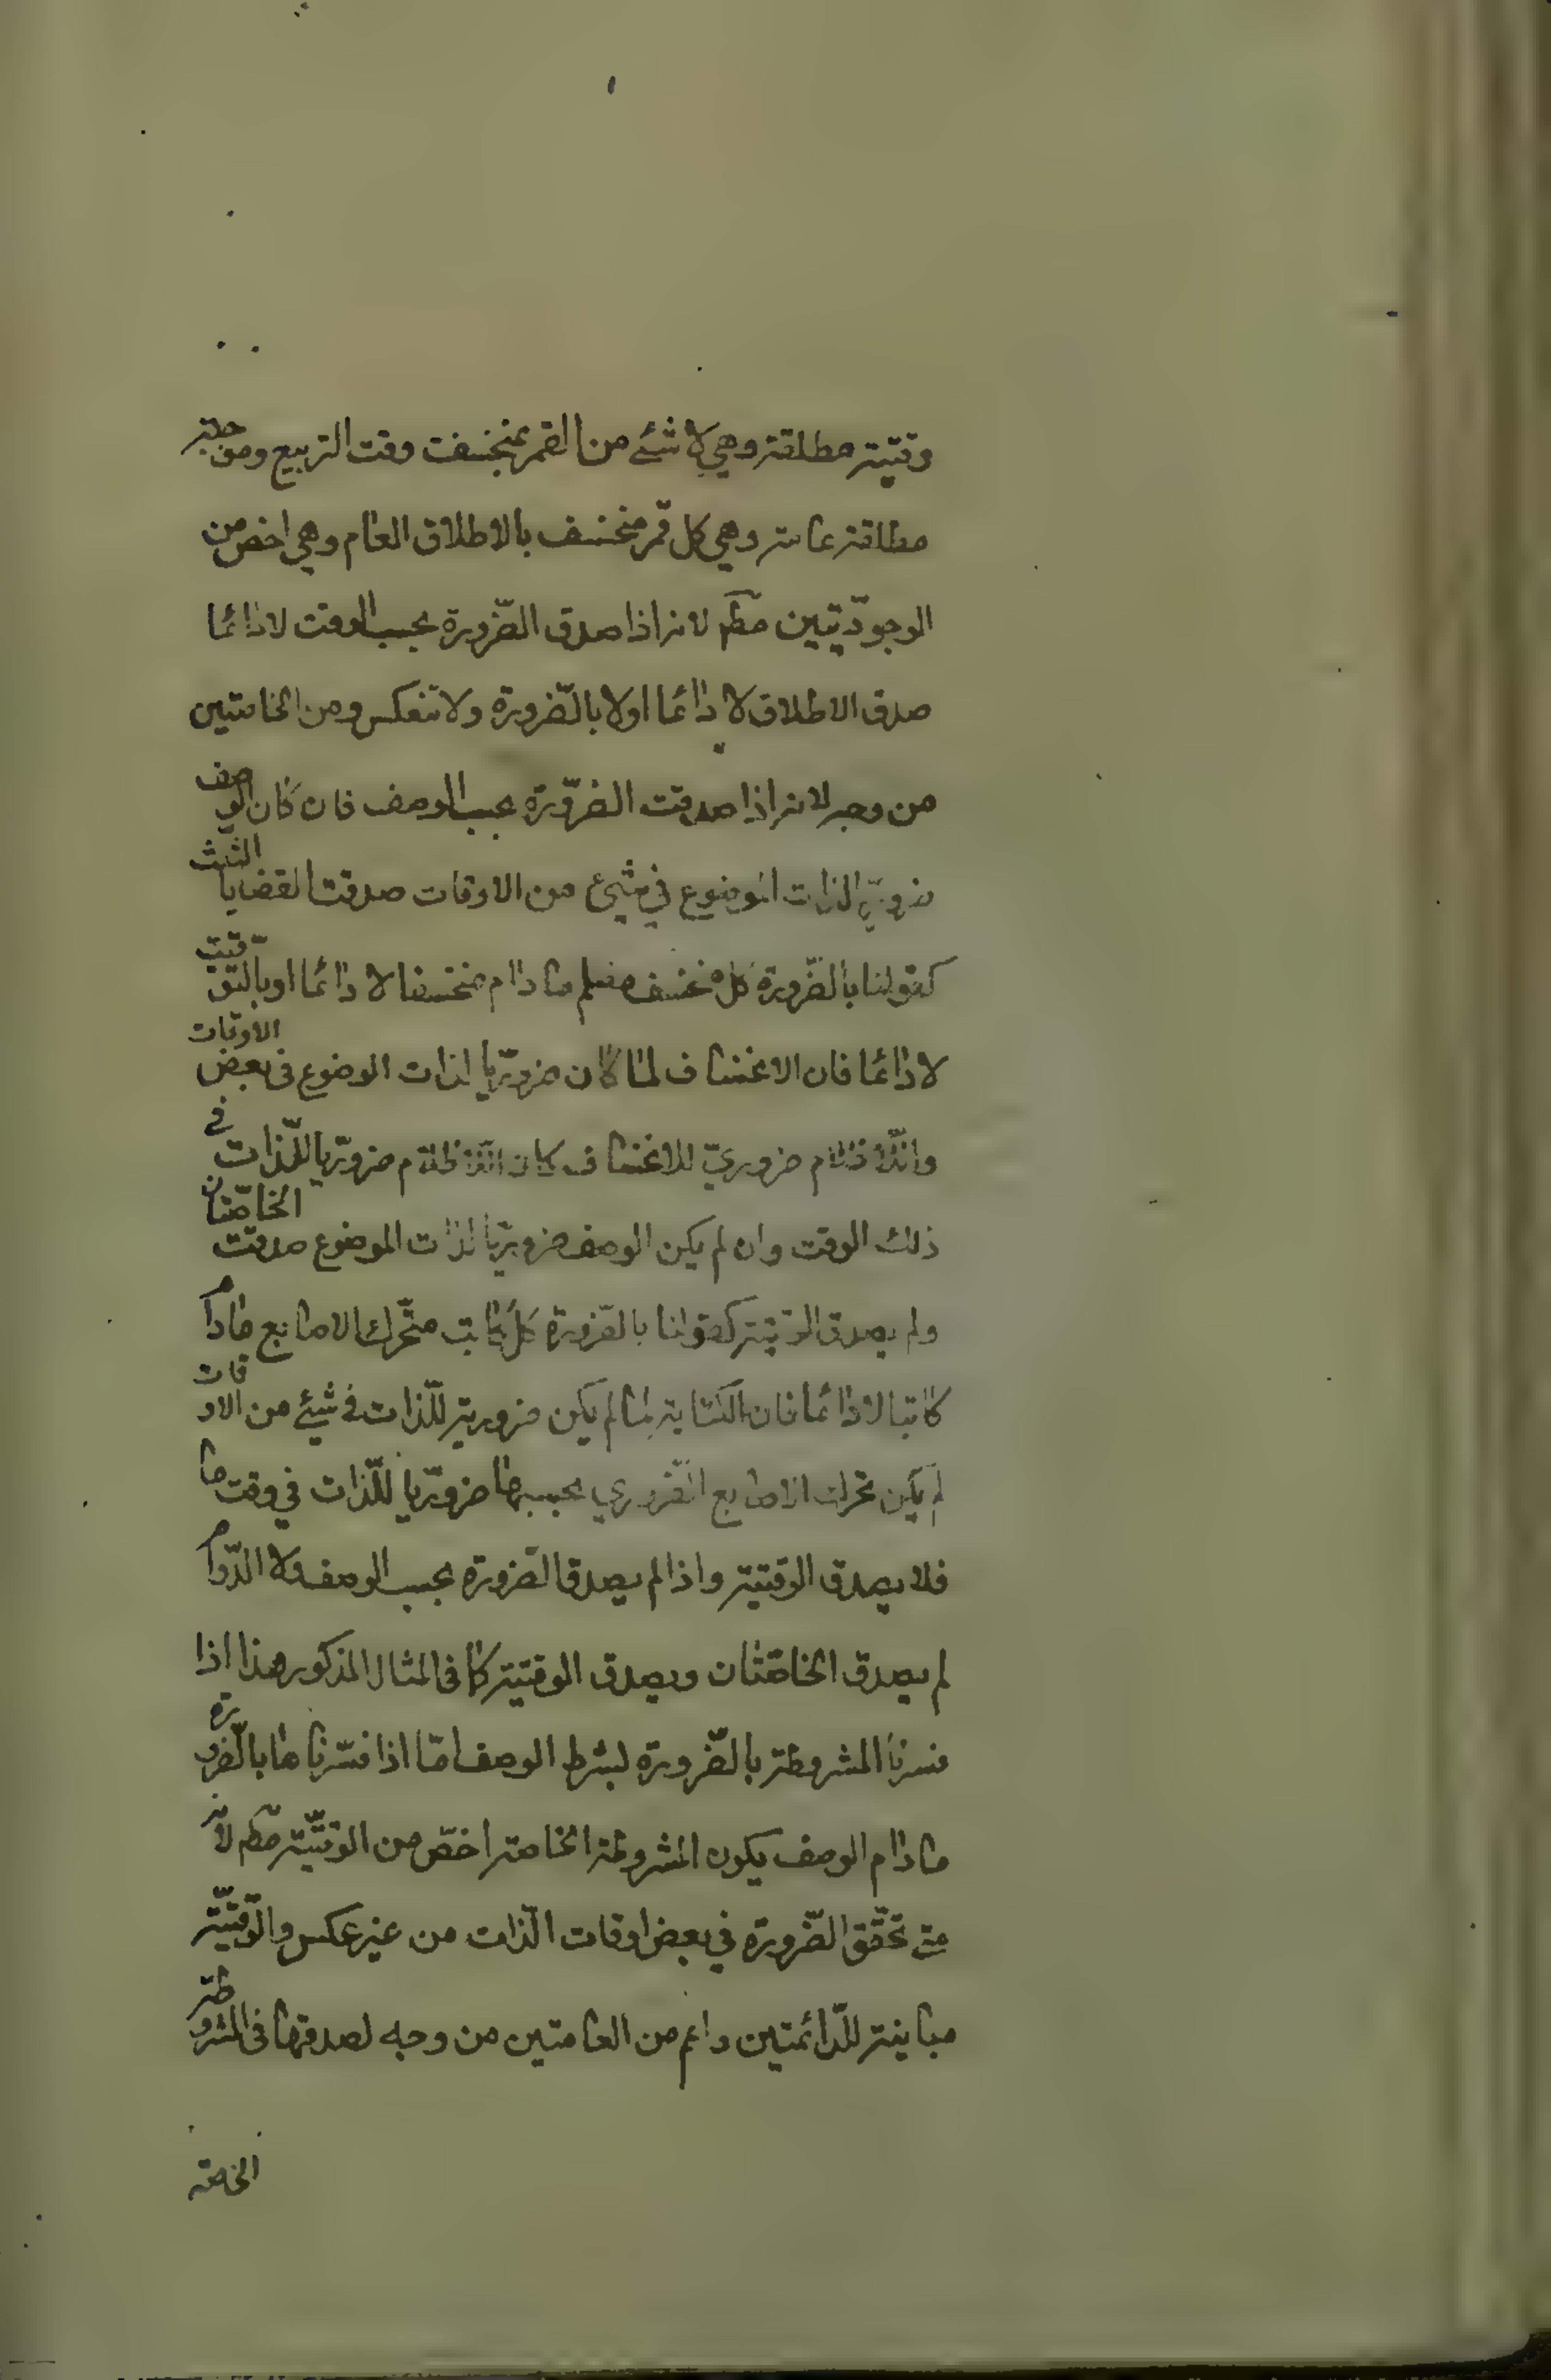 وقتية مطلقة وهي لا شئ من القمر بمنخسف وقت التربيع وموجبة
مطلقة عامة وهي كل قمر منخسف بالاطلاق العام وهي اخص من
الوجوديتين مطم لانه اذا صدق الضرورة بحسب الوقت لا دائما
صدق الاطلاق لا دائما او لا بالضرورة ولا تنعكس ومن الخاصتين
من وجه لانه اذا صدقت الضرورة بحسب الوصف فان كان الوصف
ضروريا لذات الموضوع في شيئ من الاوقات صدقت القضايا الثلث
كقولنا بالضرورة كل منخسف مظلم ما دام منخسفا لا دائما او بالتوقيت
لا دائما فان الانخساف لما كان ضروريا لذات الموضوع في بعض الاوقات
والاظلام ضروري للانخساف كان الاظلام ضروريا للذات في
ذلك الوقت وان لم يكن الوصف ضروريا لذات الموضوع صدقت الخاصتان
ولم يصدق الوقتية كقولنا بالضرورة كل كاتب متحرك الاصابع مادام
كاتبا لا دائما فان الكتابة لما لم يكن ضرورية للذات في شيئ من الاوقات
لم يكن تحرك الاصابع الضروري بحسبها ضروريا للذات في وقت ما
فلا يصدق الوقتية واذا لم يصدق الضرورة بحسب الوصف ولا الدوام
لم يصدق الخاصتان ويصدق الوقتية كما في المثال المذكور هذا اذا
فسرنا المشروطة بالضرورة بشرط الوصف امّا اذا فسّرناها بالضرورة
مادام الوصف يكون المشروطة الخاصة اخصّ من الوقتيّة مطم لانّه
متى تحقّق الضّرورة في بعض اوقات الذات من غير عكس والوقتيّة
مباينة للدّائمتين واعم من العامتين من وجه لصدقها في المشروطة
الخاصة